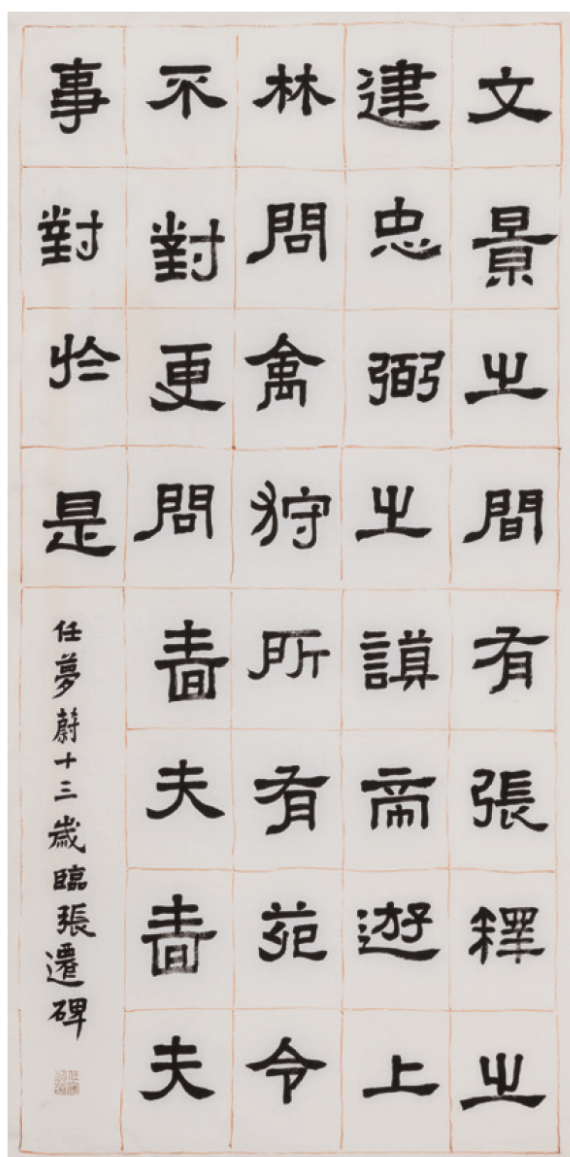 文景之間有張釋之
建忠弼之謨帝遊上
林問禽狩所有苑令
不對更問嗇夫嗇夫
事對於是
任夢蔚十三歲臨張遷碑